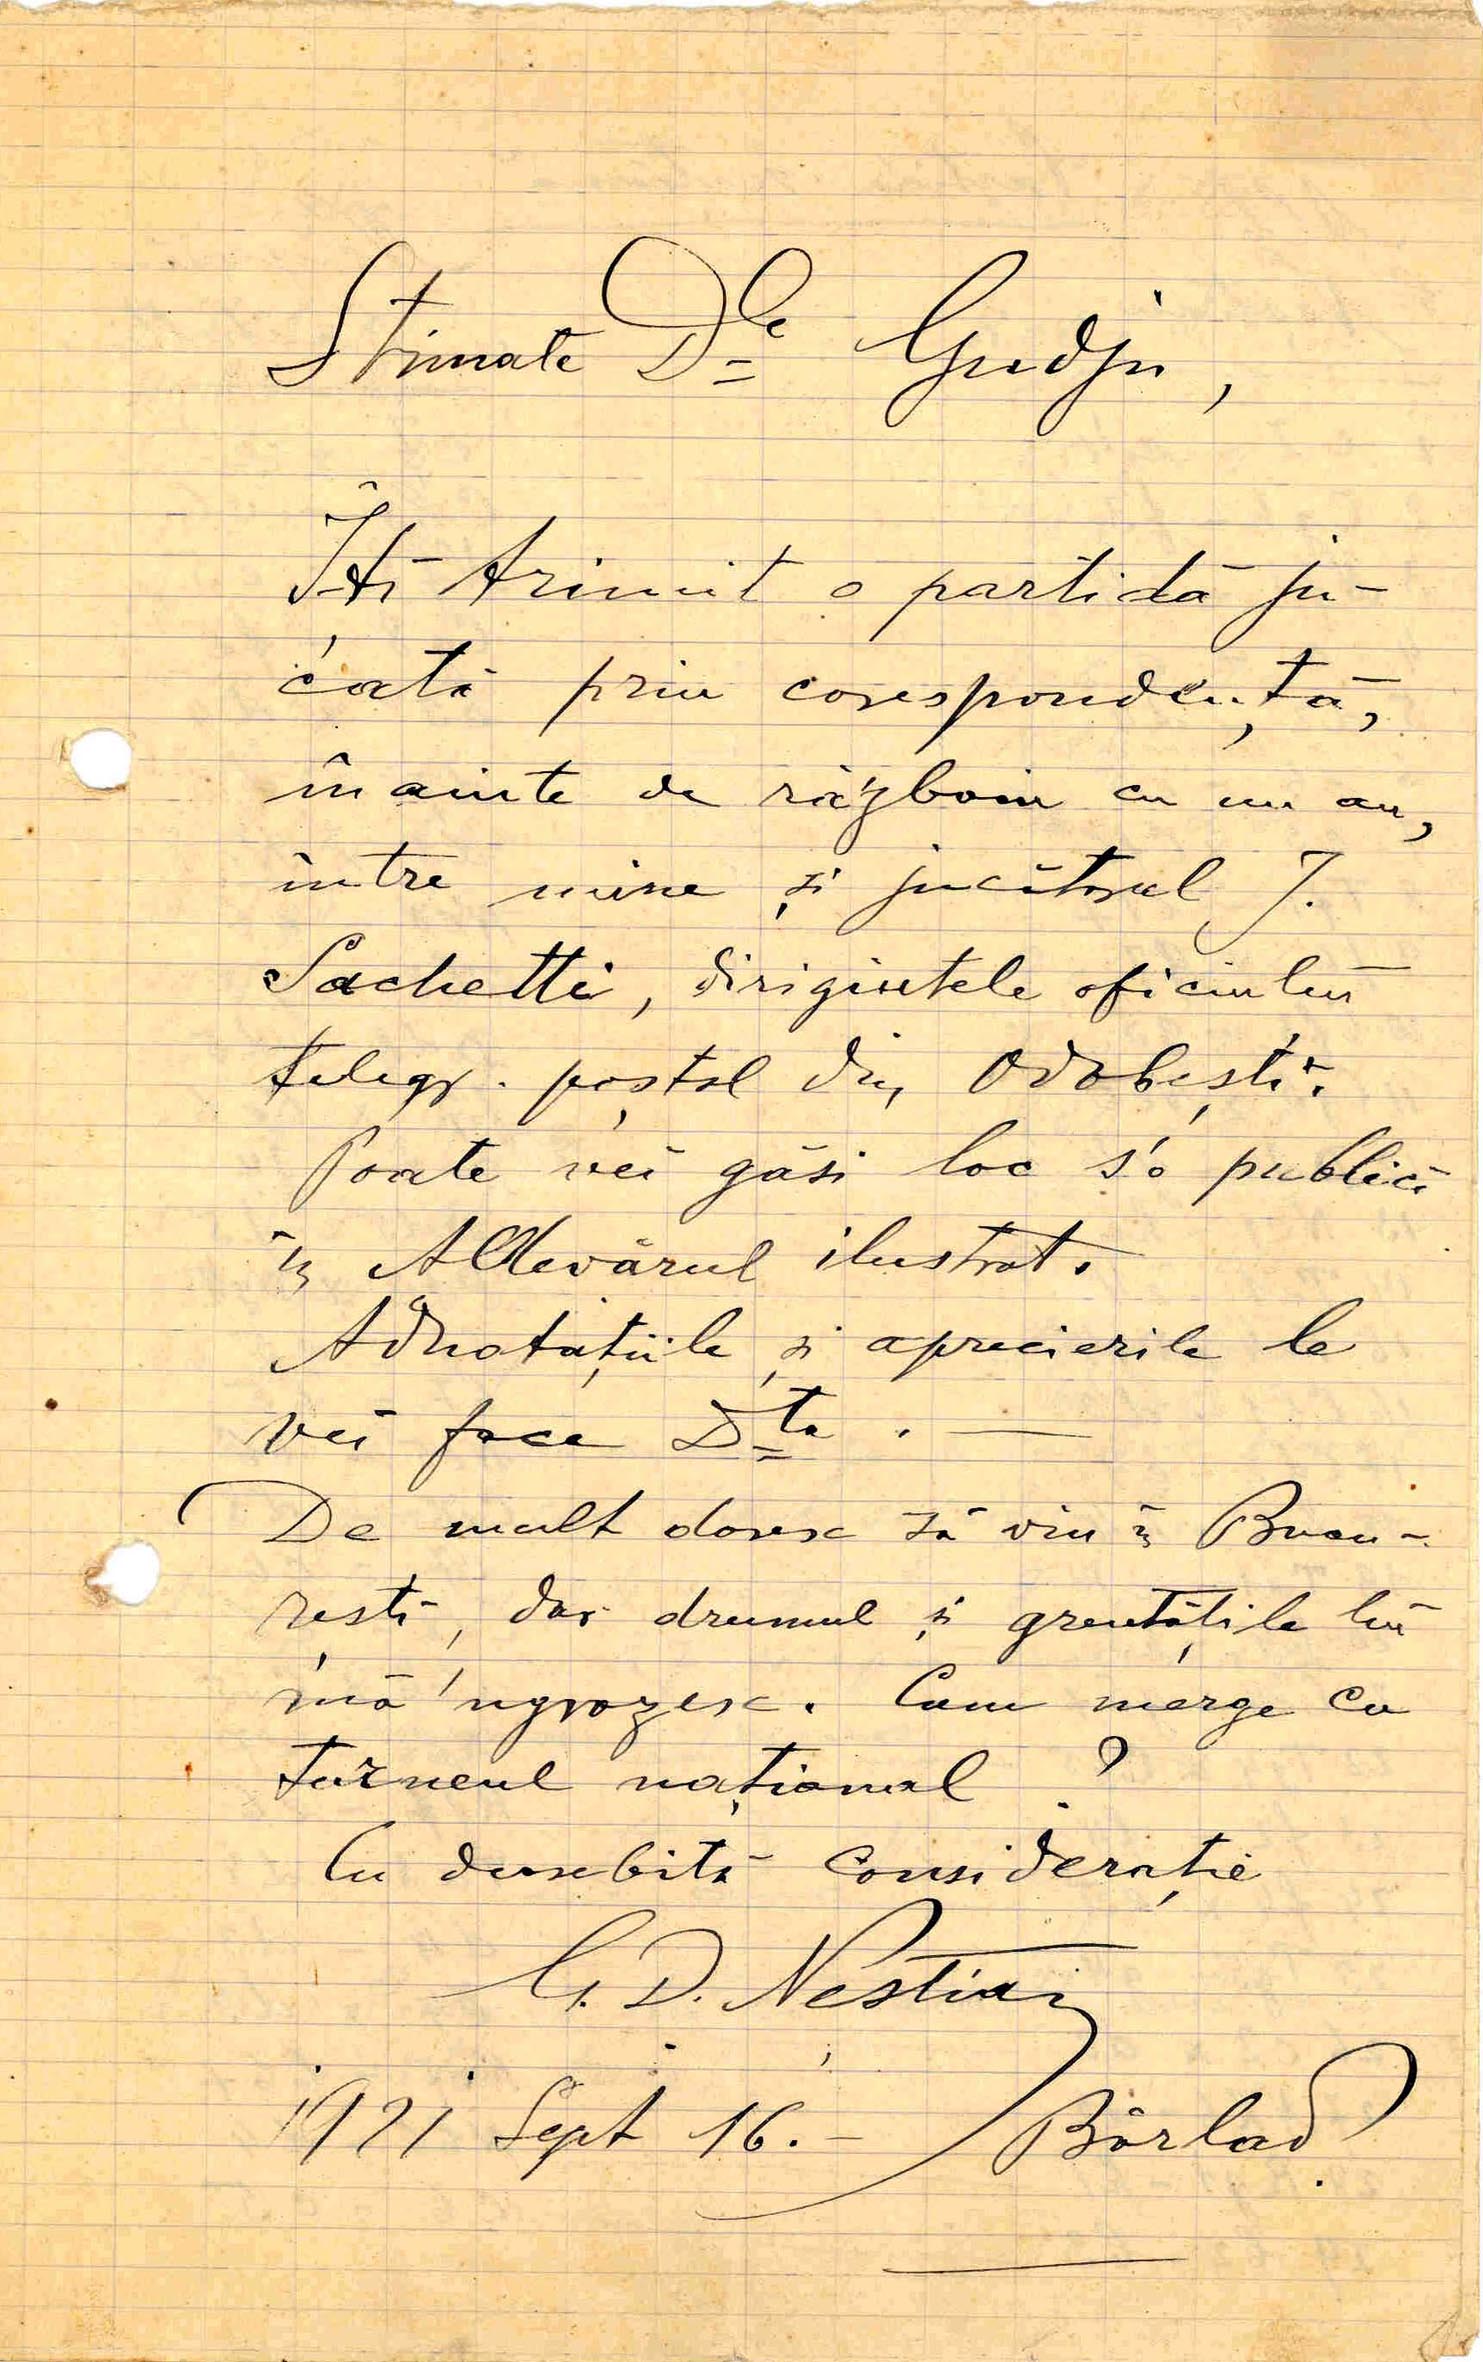 Stimate Dle Gudju,
Îți trimit o partidă ju-
cată prin corespondență,
înainte de războiu cu un an,
între mine și jucătorul J.
Sachetti, dirigintele oficiului
telegr. poștal din Odobești.
Poate vei găsi loc s'o publici
în Adevărul ilustrat.
Adnotațiile și aprecierile le
vei face Dta. —
De mult doresc să viu în Bucu-
rești, dar drumul și greutățile lui
mă 'ngrozesc. Cum merge cu
turneul național ?
Cu deosebită considerație
G. D. Nestian
1921 Sept 16. — Bârlad.